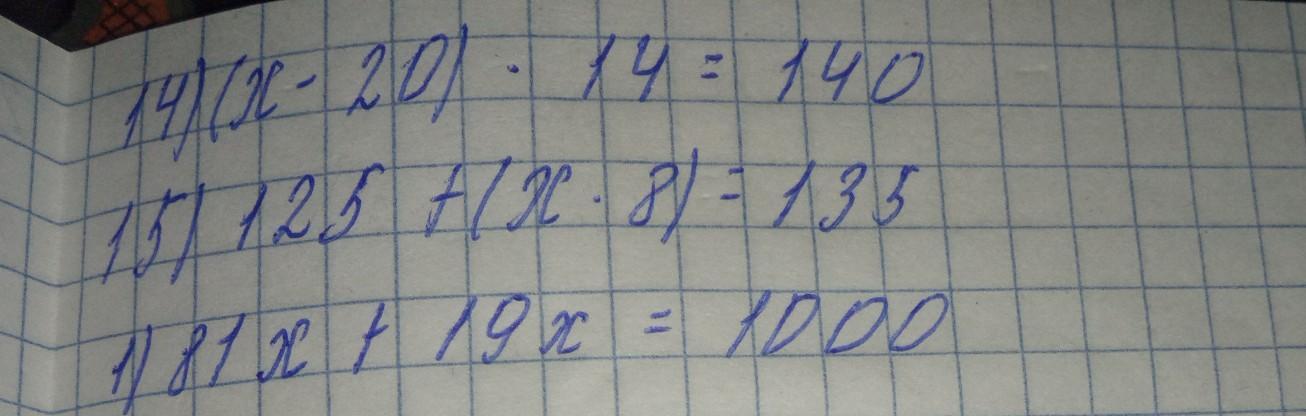 14) (x - 20) · 14 = 140
15) 125 + (x · 8) = 135
1) 81x + 19x = 1000